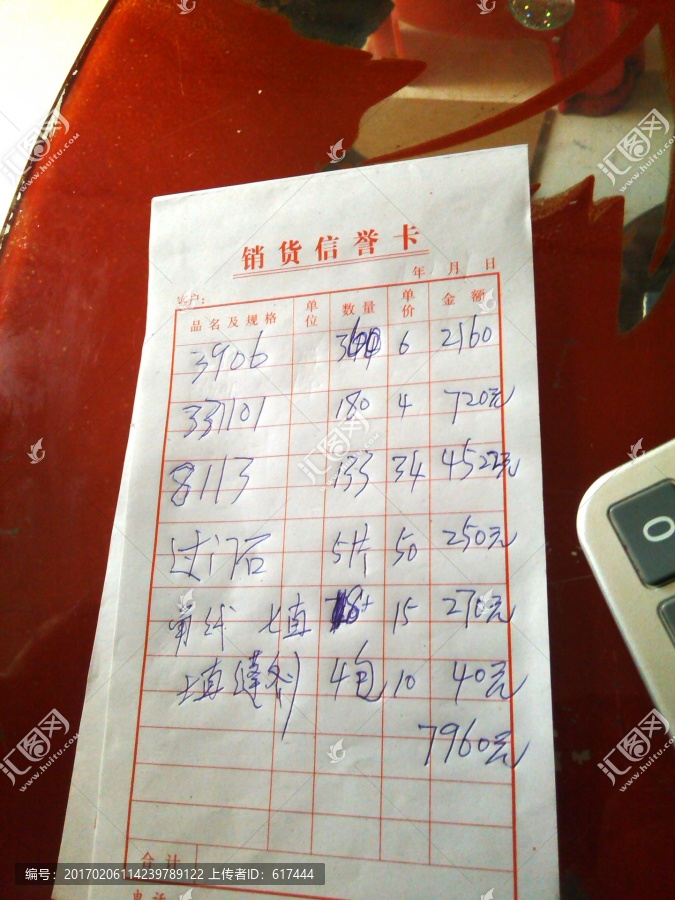 销货信誉卡
年 月 日
客户:
品名及规格 单位 数量 单价 金额
3906 360 6 2160
331101 180 4 720元
8113 133 34 4522元
过门石 5片 50 250元
18 15 270元
填缝剂 4包 10 40元
7960元
合计
电话
编号: 20170206114239789122 上传者ID: 617444
汇图网
www.huitu.com